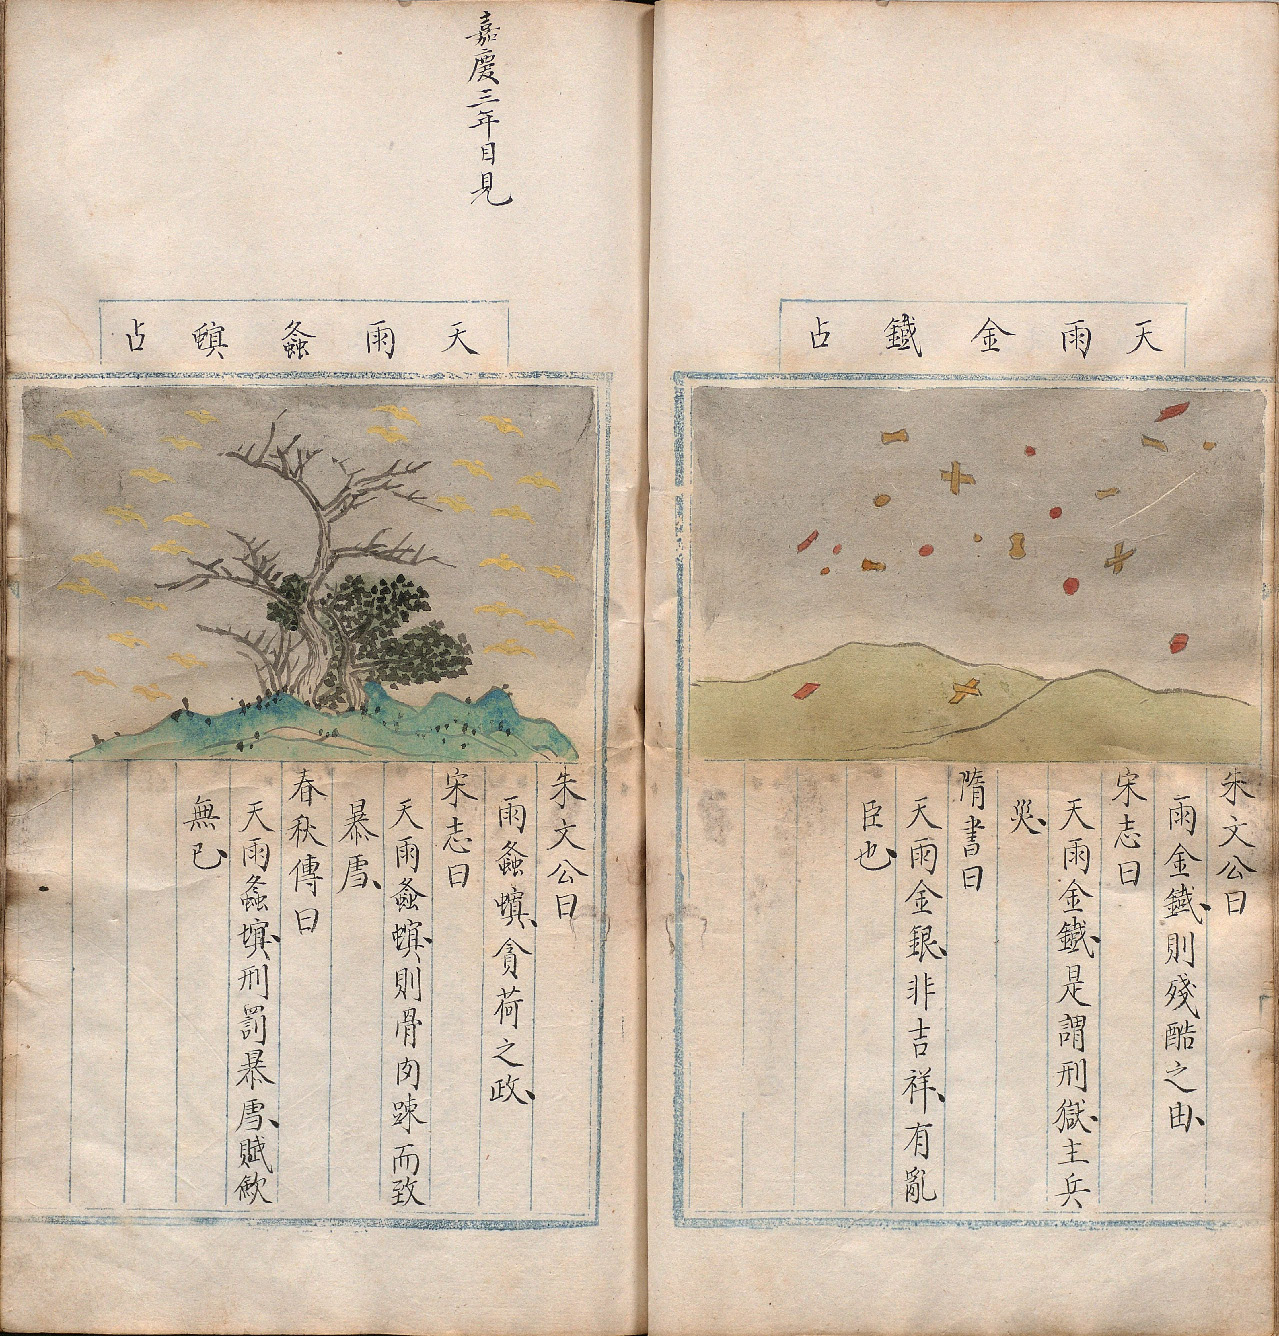 天雨金鐵占
朱文公曰
雨金鐵則殘酷之由
宋志曰
天雨金鐵是謂刑獄主兵
災
隋書曰
天雨金銀非吉祥有亂
臣也
嘉慶三年目見
天雨螽螟占
朱文公曰
雨螽螟貪荷之政
宋志曰
天雨螽螟則骨肉踈而致
暴雪
春秋傳曰
天雨螽螟刑罰暴雪賦斂
無已